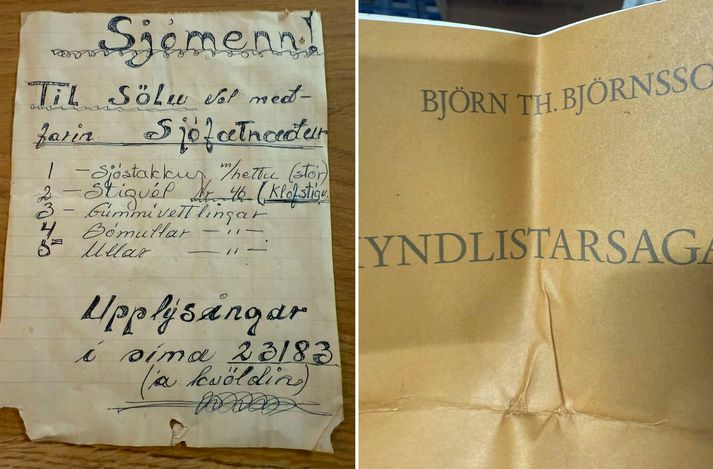 Sjómenn!
Til sölu vel með-
farin Sjófatnaður
1 – Sjóstakkur m/hettu (stór)
2 – Stígvél Nr. 46 (Klofstígv.
3 – Gúmmívettlingar
4 – Bómullar — 〃 —
5 – Ullar — 〃 —
Upplýsingar
í síma 23183
(á kvöldin)
BJÖRN TH. BJÖRNSSO
YNDLISTARSAGA